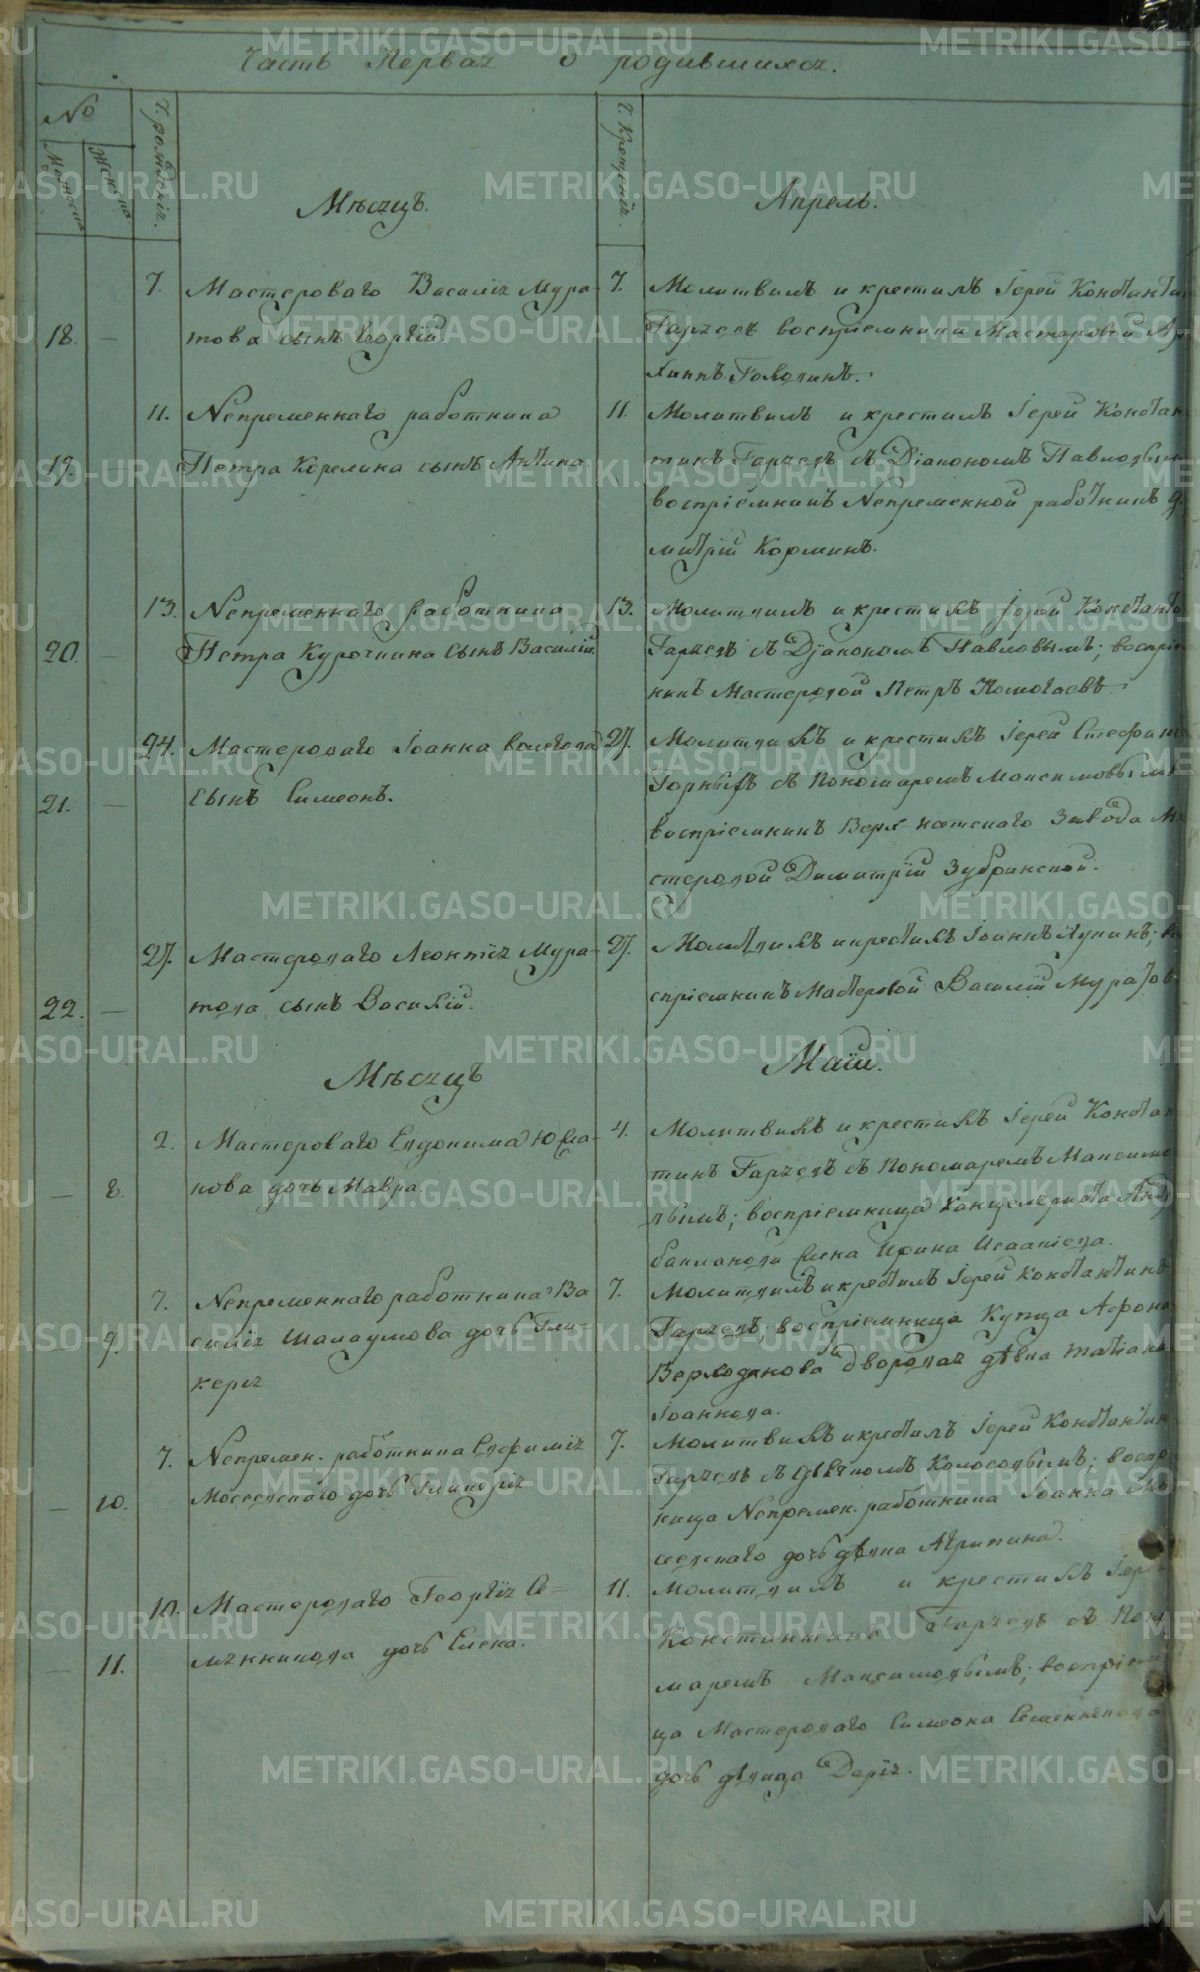 Часть Первая о родившихся.
№
Мужеска
Женска
Ч. рождения.
Ч. Крещения.
Мѣсяцъ. Апрель.
18. — 7. Мастероваго Василія Мура-
това сынъ Георгій.
7. Молитвилъ и крестилъ Іерей Константин
Гаряевъ воспріемники Мастеровой Ар
хиппъ Головинъ.
19. — 11. Непременнаго работника
Петра Корелина сынъ Антипа
11. Молитвилъ и крестилъ Іерей Констан
тинъ Гаряевъ съ Діакономъ Павловым
воспріемникъ Непременной работникъ Д.
митрій Корминъ.
20. — 13. Непременнаго работника
Петра Курочкина Сынъ Василій.
13. Молитвилъ и крестилъ Іерей Константи
Гаряевъ съ Діакономъ Павловымъ; воспріе
никъ Мастеровой Петръ Помогаевъ.
21. — 24. Мастероваго Іоанна
Сынъ Симеонъ.
27. Молитвилъ и крестилъ Іерей Стефанъ
Горныхъ съ Пономаремъ Максимовымъ
воспріемникъ Верх-исетскаго Завода Ма
стеровой Димитрій Зубринской.
22. — 27. Мастероваго Леонтія Мура-
това сынъ Василій.
27. Молитвилъ и крестилъ Іоаннъ Лупинъ; во
спріемникъ Мастеровой Василій Муратов
Мѣсяцъ Маій.
— 8. 2. Мастероваго Евдокима Юша-
кова дочь Мавра.
4. Молитвилъ и крестилъ Іерей Констан
тинъ Гаряевъ съ Пономаремъ Максимо
вымъ; воспріемница Канцеляриста
жена Ирина Исаакіева.
— 9. 7. Непременнаго работника Ва
силія Шалаумова дочь Гли-
керія
7. Молитвилъ и крестилъ Іерей Константинъ
Гаряевъ; воспріемница Купца Афона
Верходанова дворовая дѣвка Татіана
Іоаннова.
— 10. 7. Непремен. работника Евфимія
Мосеевскаго дочь Гликерія
7. Молитвилъ и крестилъ Іерей Константин
Гаряевъ съ Дьячкомъ Колосовымъ; воспр
ница Непремен. работника Іоанна Мо
сеевскаго дочь дѣвка Агрипина.
— 11. 10. Мастероваго Георгія Се=
мянникова дочь Елена.
11. Молитвилъ и крестилъ Іере
Константинъ Гаряевъ съ Поно
маремъ Максимовымъ; воспріемни
ца Мастероваго Симеона Семянникова
дочь дѣвица Дарія.
METRIKI.GASO-URAL.RU